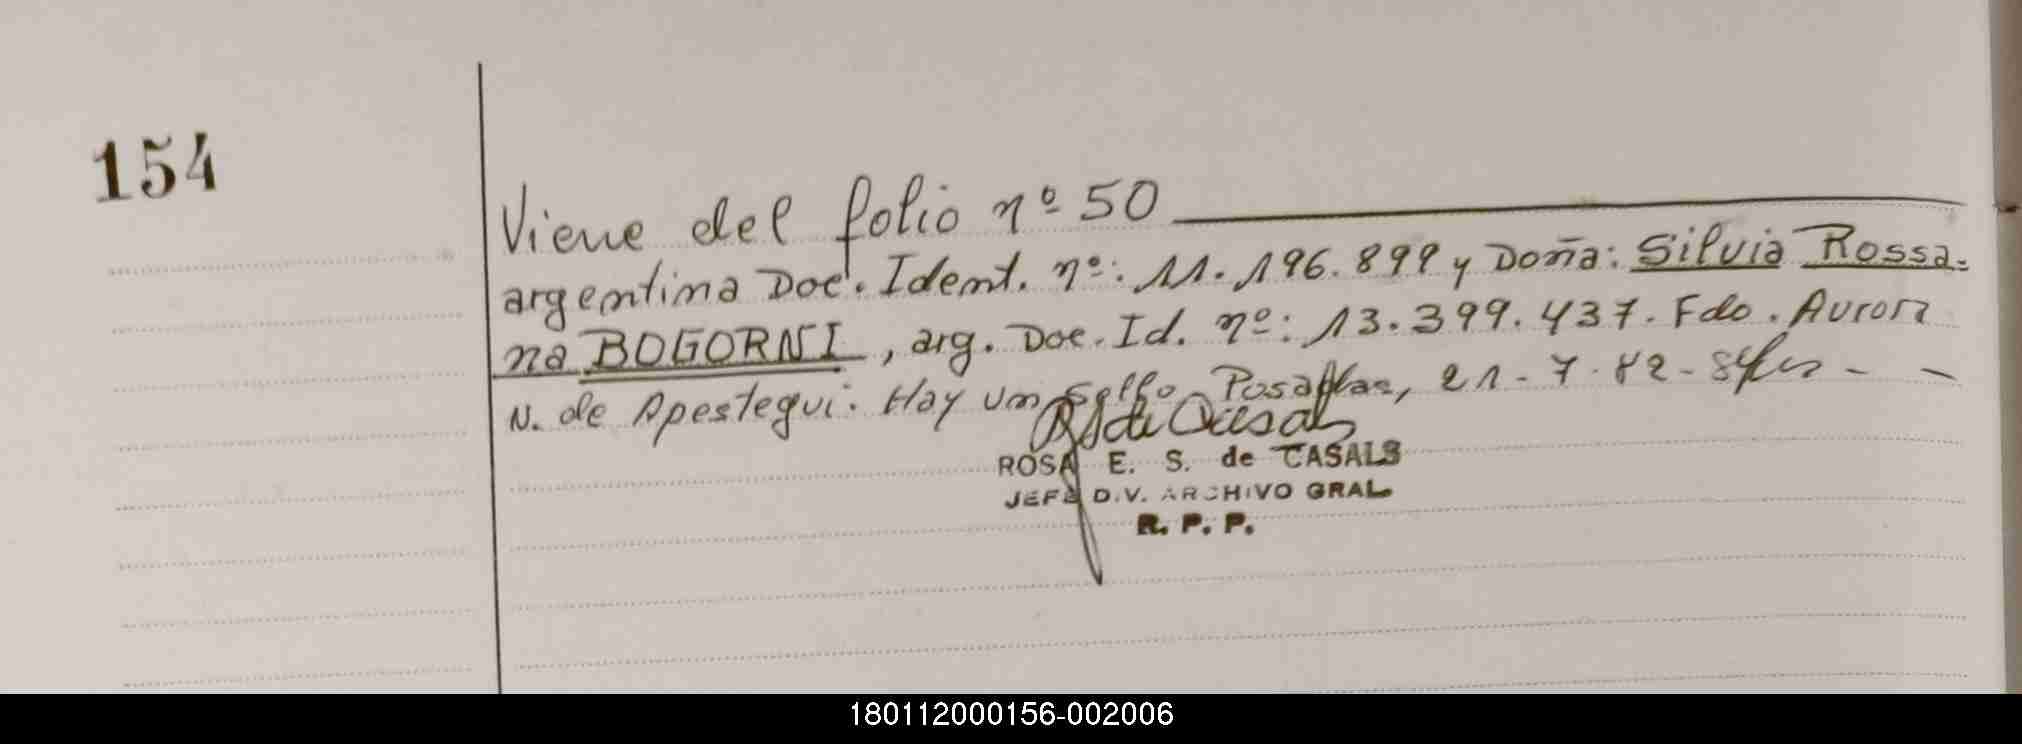 154
Viene del folio nº 50
argentina Doc. Ident. nº: 11.196.899 y Doña: Silvia Rossa-
na BOGORNI, arg. Doc. Id. nº: 13.399.437. Fdo. Aurora
N. de Apestegui. Hay un sello Posadas, 21-7-82-
ROSA E. S. de CASALS
JEFE DIV. ARCHIVO GRAL.
R. P. P.
180112000156-002006